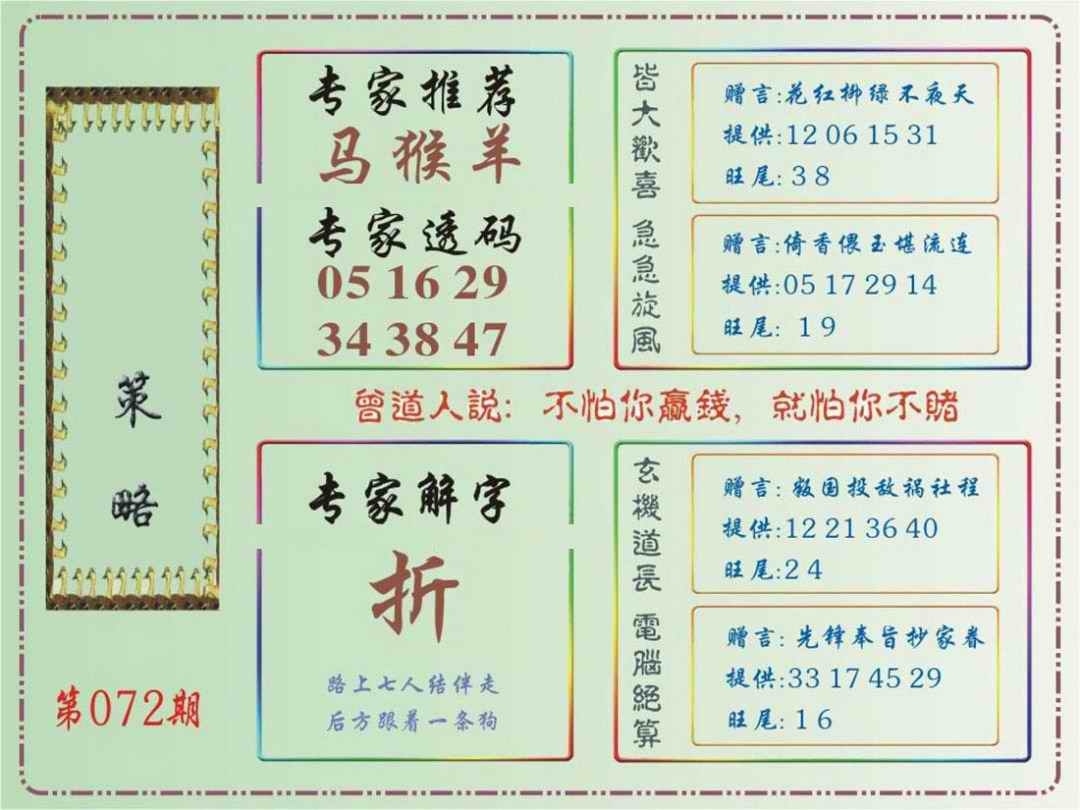 策
略
第072期
专家推荐
马猴羊
专家透码
05 16 29
34 38 47
皆大歡喜
赠言:花红柳绿不夜天
提供:12 06 15 31
旺尾: 3 8
急急旋風
赠言:倚香偎玉堪流连
提供:05 17 29 14
旺尾: 1 9
曾道人説: 不怕你贏錢, 就怕你不賭
专家解字
折
路上七人结伴走
后方跟着一条狗
玄機道長
赠言: 叛国投敌祸社程
提供:12 21 36 40
旺尾:2 4
電腦絕算
赠言: 先锋奉旨抄家眷
提供:33 17 45 29
旺尾: 1 6